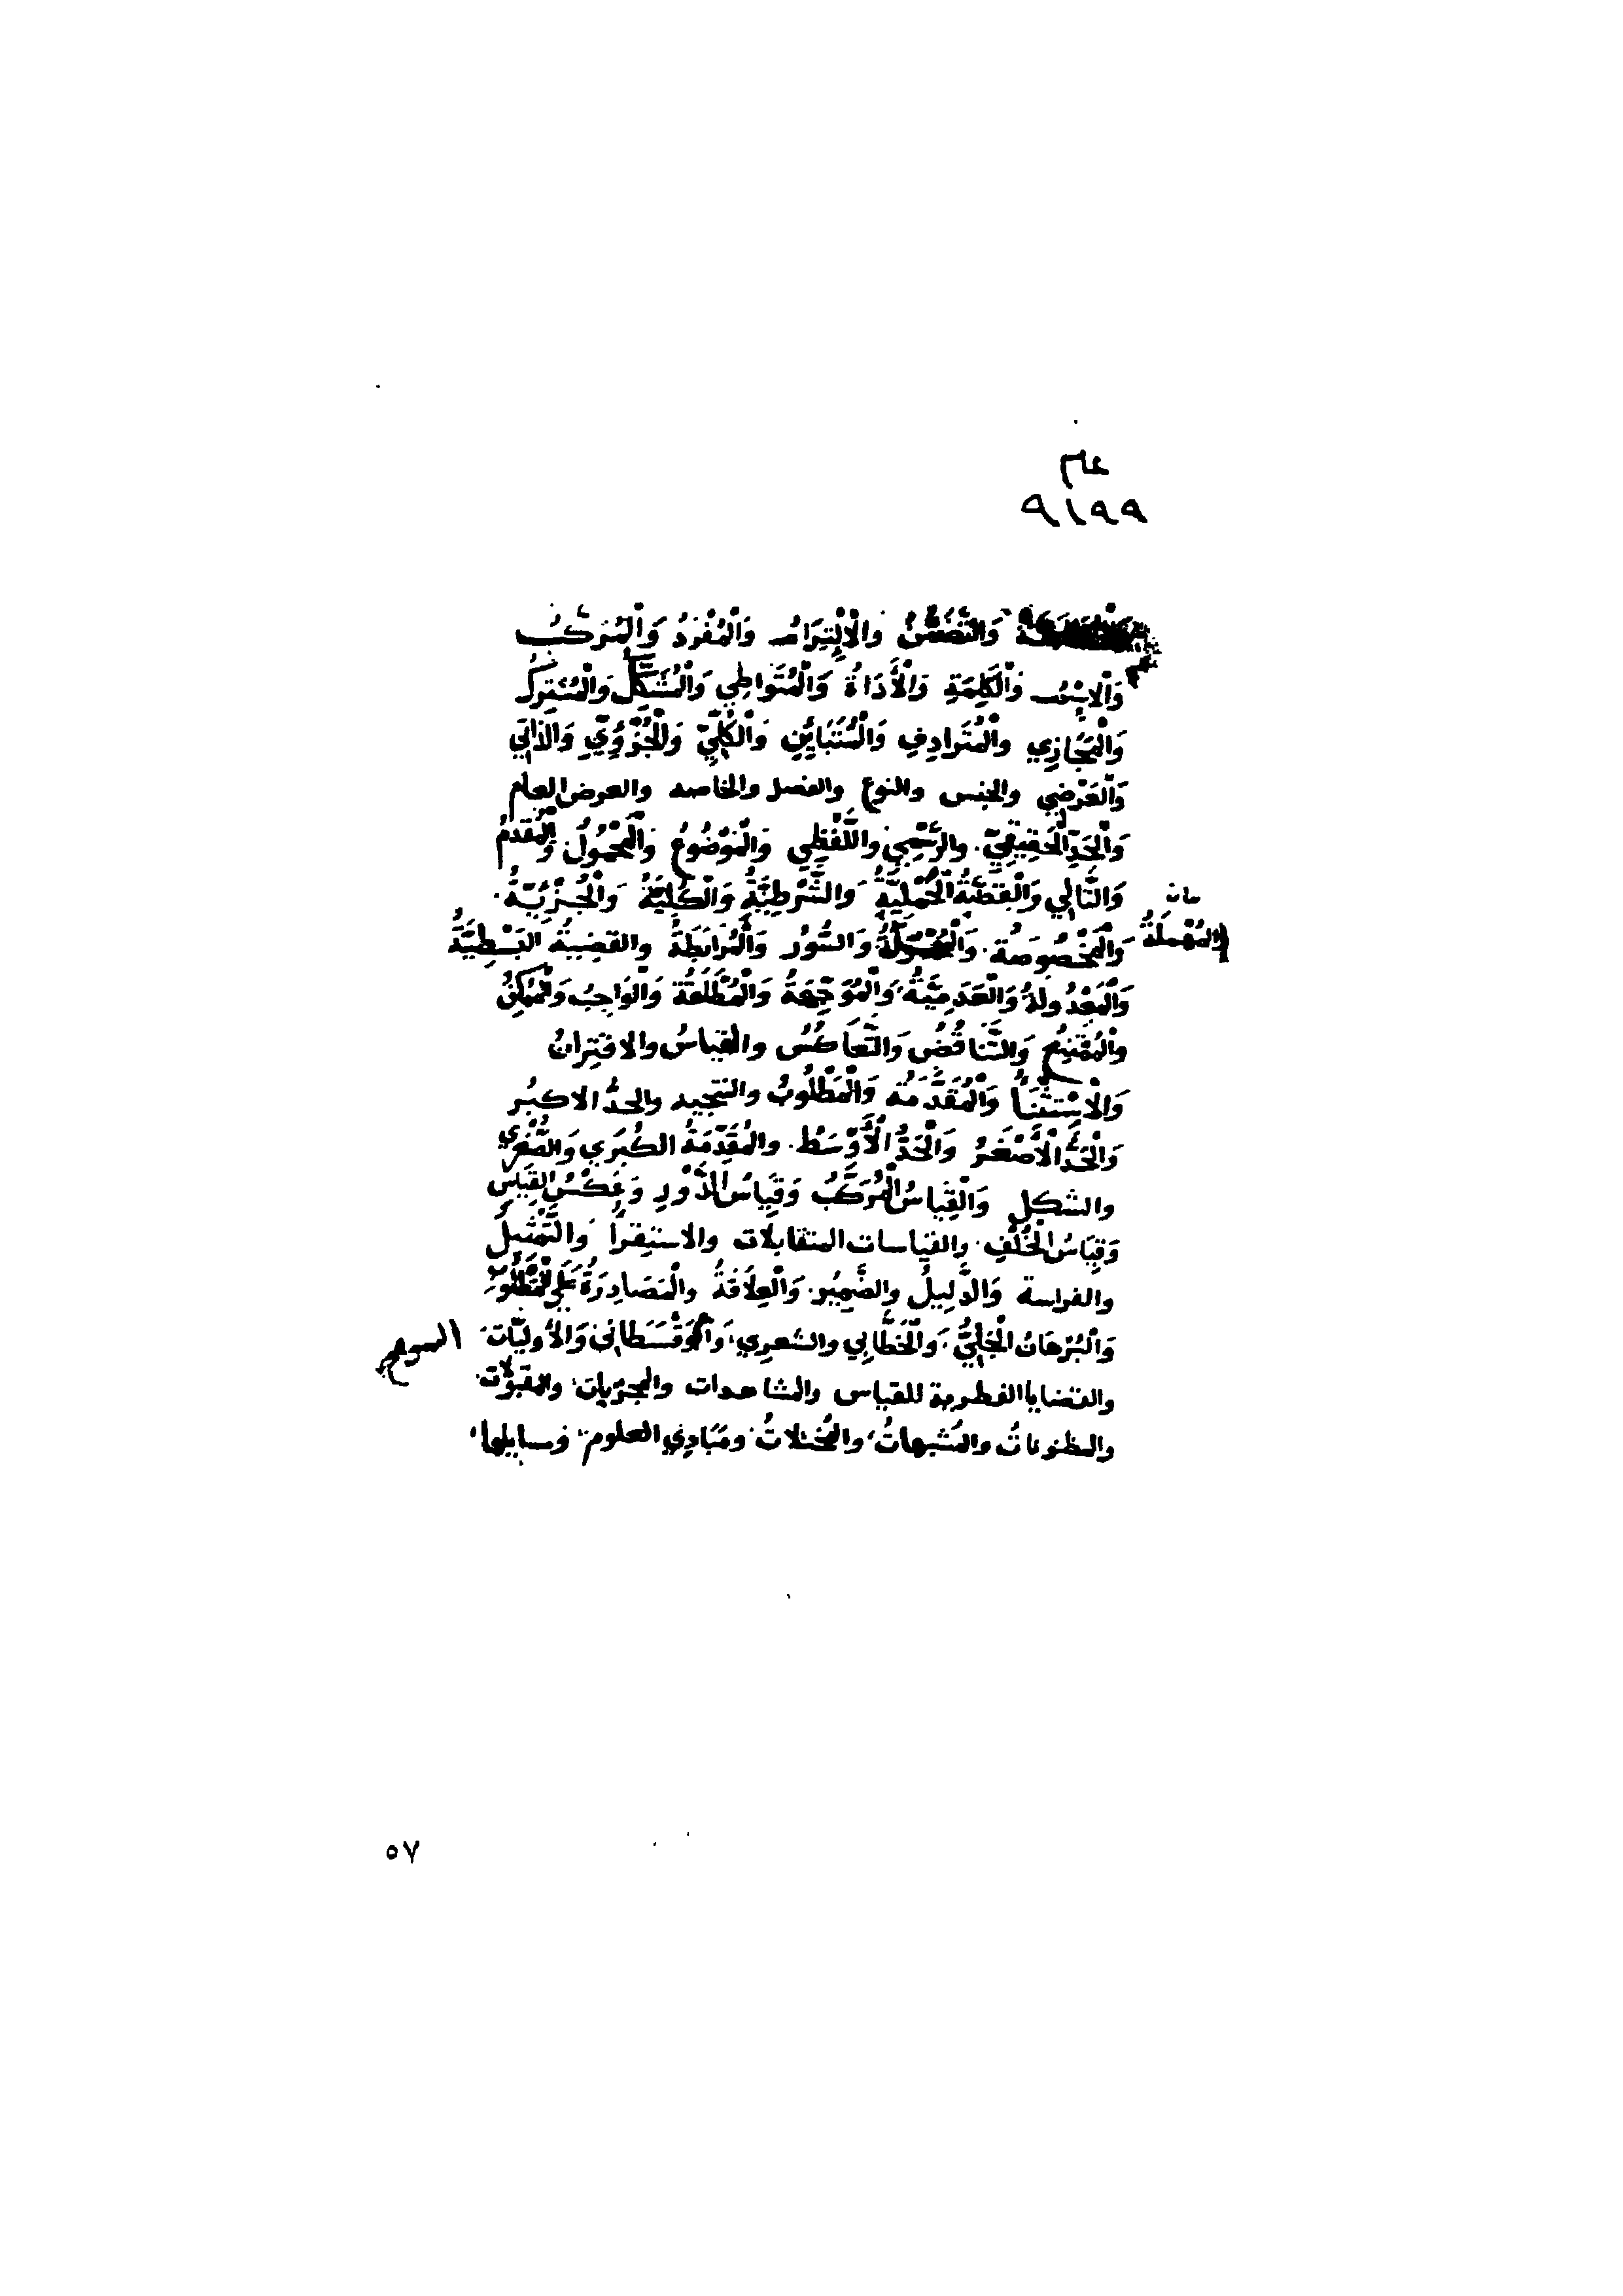 ٩١٩٩
وَالتَّضَمُّنُ والْاِلْتِزَامُ وَالْمُفْرَدُ وَالْمُرَكَّبُ
وَالْاِسْمُ وَالْكَلِمَةِ وَالْأَدَاةُ وَالْمُتَوَاطِي وَالْمُشَكِّكُ وَالْمُشتَرِكُ
وَالْمَجَازِي والْمُتَرادِفِ وَالْمُتَبَايِنِ وَالْكُلِّيّ وَالْجُزْوِيِّ وَالذَاتي
وَالْعَرْضِي والجنس والنوع والفصل والخاصه والعرض العام
وَالْحَدِّ الْحَقِيقِيّ والرَّسْمِي واللَّفْظِي وَالْمَوْضُوعُ وَالْمَحْمُولُ وَالْمُقَدَّمُ
وَالتَّالِي وَالْقَضِيَّةُ الْحَمْلِيَّةُ وَالشَّرْطِيَّةُ وَالْكُلِيَّةُ وَالْجُزْئِيَّةُ
وَالمُهْمَلَةُ
وَالْمَخْصُوصَةُ وَالسُّوْرُ وَالْرَابِطَةُ والقضِيةُ البَسْطِيَّةُ
وَالْمَعْدُولةُ وَالْعَدَمِيَّةُ وَالْمُوَجَّهَةُ وَالْمُطْلَقَةُ وَالْوَاجِبُ وَالْمُمْكِنُ
والْمُمْتَنِعُ وَالتَّنَاقُضُ وَالتَّعَاكُسُ والقياسُ والاقتِرانُ
وَالْاِسْتِثْنَاُ وَالْمُقَدَّمَةُ وَالْمَطْلُوبُ والنتيجه والحدُّ الاكبُر
وَالْحَدُّ الْأَصْغَرُ وَالْحَدُّ الْأَوْسَطُ والمُقَدِّمَةُ الكُبَرَي وَالصُّغْرَي
والشكل وَالْقِيَاسُ الْمُرَكَّبُ وَقِيَاسُ الدَّوْرِ وَعَكْسُ القِيَاسِ
وَقِيَاسُ الْخُلْفِ والقياسات المتقابلات والاستقرأُ وَالتَّمْثِيلُ
والفراسة وَالدَّلِيلُ والضَّمِيُر وَالْعِلَاقةُ والْمَصَادِرَةُ عَلَى الْمَطْلُوبِ
وَالْبُرْهَانُ الْجَلِيُّ وَالْخَطَّابِي والشعرِي وَالْسُوفَسْطَانِي وَالْأَوليّات
والقضايا الفطرية للقياس والمشاهدات والمجرّبات والمقبولات
والمظنونات والمُشبهاتُ والمُخيّلاتُ ومَبَادِي العلوم ومسايلها
٥٧